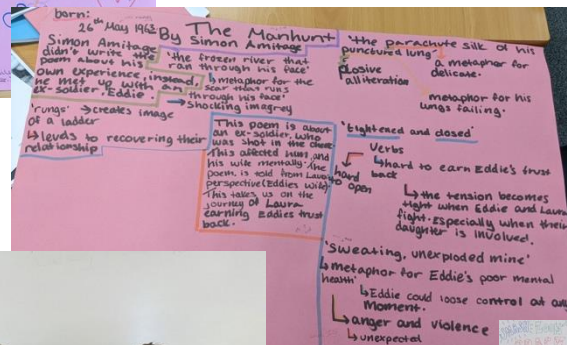 born:
26th May 1963
The Manhunt
By Simon Armitage
Simon Armitage
didn't write the
poem about his
own experience, instead,
he met up with an
ex-soldier. Eddie.
'the frozen river that
ran through his face'
↳ metaphor for the
scar that runs
through his face'
→ Shocking imagrey
'rungs' → creates image
of a ladder
↳ levels to recovering their
relationship
This poem is about
an ex-soldier. Who
was shot in the chest
This affected him, and
his wife mentally. The
poem, is told from Laura
perspective (Eddies wife)
This takes us on the
journey of Laura
earning Eddies trust
back.
'the parachute silk of his
punctured lung'
plosive
alliteration
a metaphor for
delicate.
metaphor for his
lungs failing.
'tightened and closed'
Verbs
hard
to open
↳ hard to earn Eddie's trust
back
↳ the tension becomes
tight when Eddie and Laura
fight. Especially when their
daughter is involved.
'Sweating, unexploded mine'
↳ metaphor for Eddie's poor mental
health
↳ Eddie could loose control at any
Moment.
↳ anger and violence
↳ unexpected